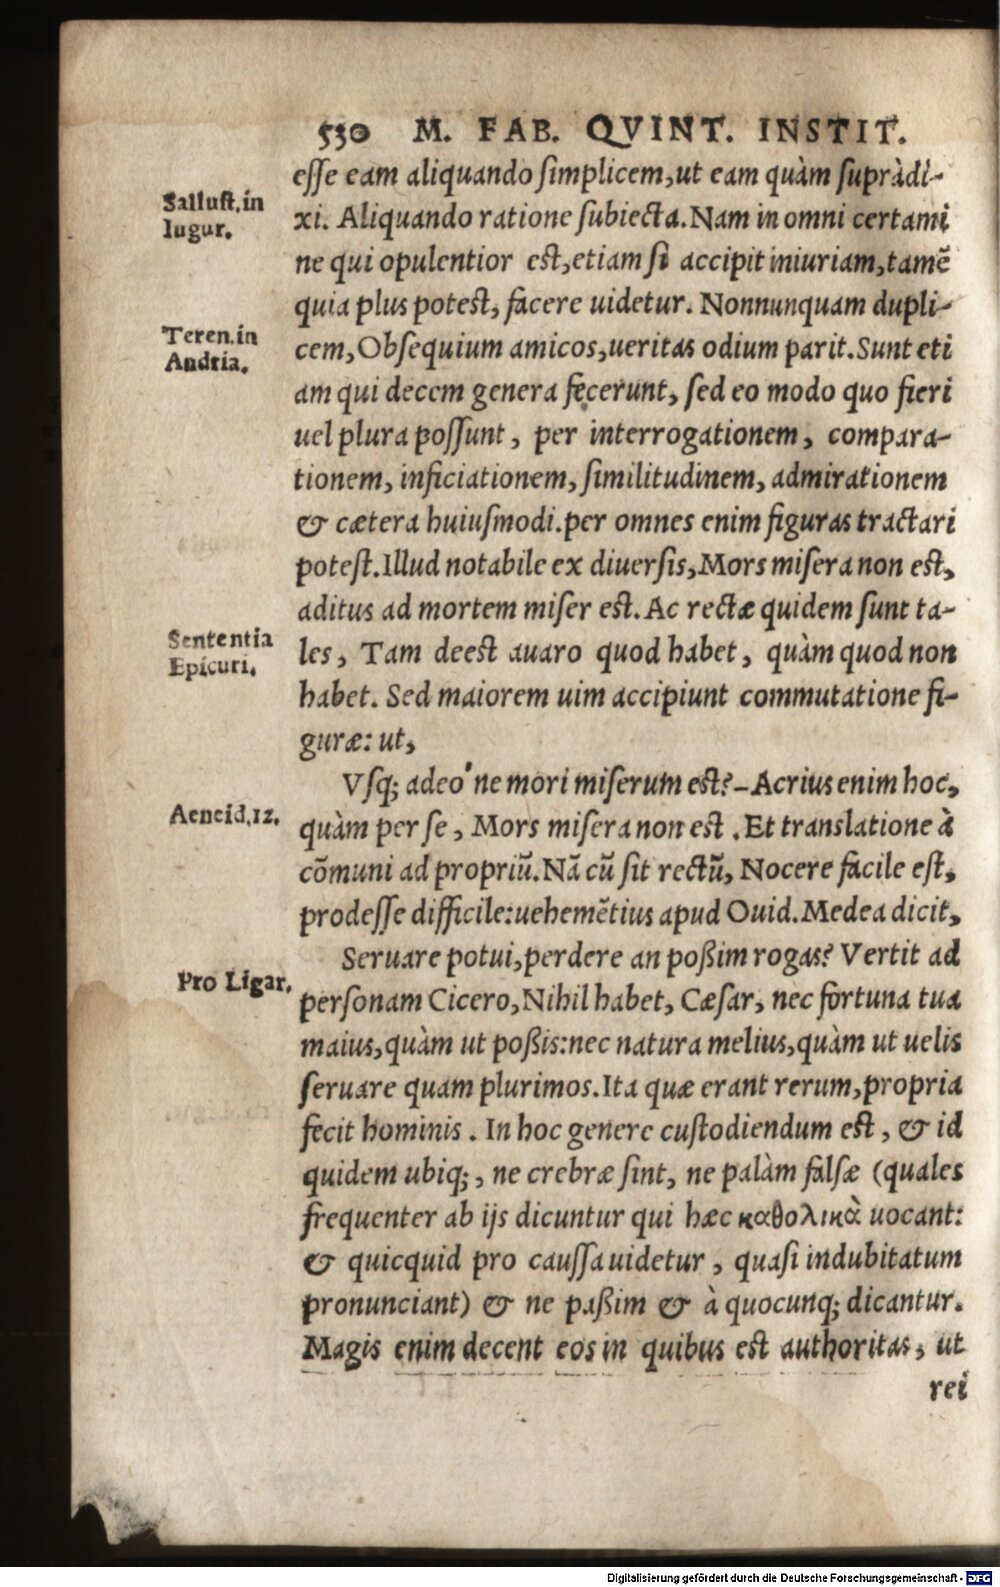 530 M. FAB. QVINT. INSTIT.
esse eam aliquando simplicem, ut eam quàm supràdi-
Sallust. in
Iugur.
xi. Aliquando ratione subiecta. Nam in omni certami
ne qui opulentior est, etiam si accipit iniuriam, tamē
quia plus potest, facere uidetur. Nonnunquam dupli-
Teren. in
Andria.
cem, Obsequium amicos, ueritas odium parit. Sunt eti
am qui decem genera fecerunt, sed eo modo quo fieri
uel plura possunt, per interrogationem, compara-
tionem, inficiationem, similitudinem, admirationem
& cætera huiusmodi. per omnes enim figuras tractari
potest. Illud notabile ex diuersis, Mors misera non est,
aditus ad mortem miser est. Ac rectæ quidem sunt ta-
Sententia
Epicuri.
les, Tam deest auaro quod habet, quàm quod non
habet. Sed maiorem uim accipiunt commutatione fi-
guræ: ut,
Vsq; adeo'ne mori miserum est? - Acrius enim hoc,
Aeneid. 12.
quàm per se, Mors misera non est. Et translatione à
cōmuni ad propriū. Nā cū sit rectū, Nocere facile est,
prodesse difficile: uehemētius apud Ouid. Medea dicit,
Seruare potui, perdere an poßim rogas? Vertit ad
Pro Ligar.
personam Cicero, Nihil habet, Cæsar, nec fortuna tua
maius, quàm ut poßis: nec natura melius, quàm ut uelis
seruare quam plurimos. Ita quæ erant rerum, propria
fecit hominis. In hoc genere custodiendum est, & id
quidem ubiq;, ne crebræ sint, ne palàm falsæ (quales
frequenter ab ijs dicuntur qui hæc καθολικὰ uocant:
& quicquid pro caussa uidetur, quasi indubitatum
pronunciant) & ne paßim & à quocunq; dicantur.
Magis enim decent eos in quibus est authoritas, ut
rei
Digitalisierung gefördert durch die Deutsche Forschungsgemeinschaft - DFG